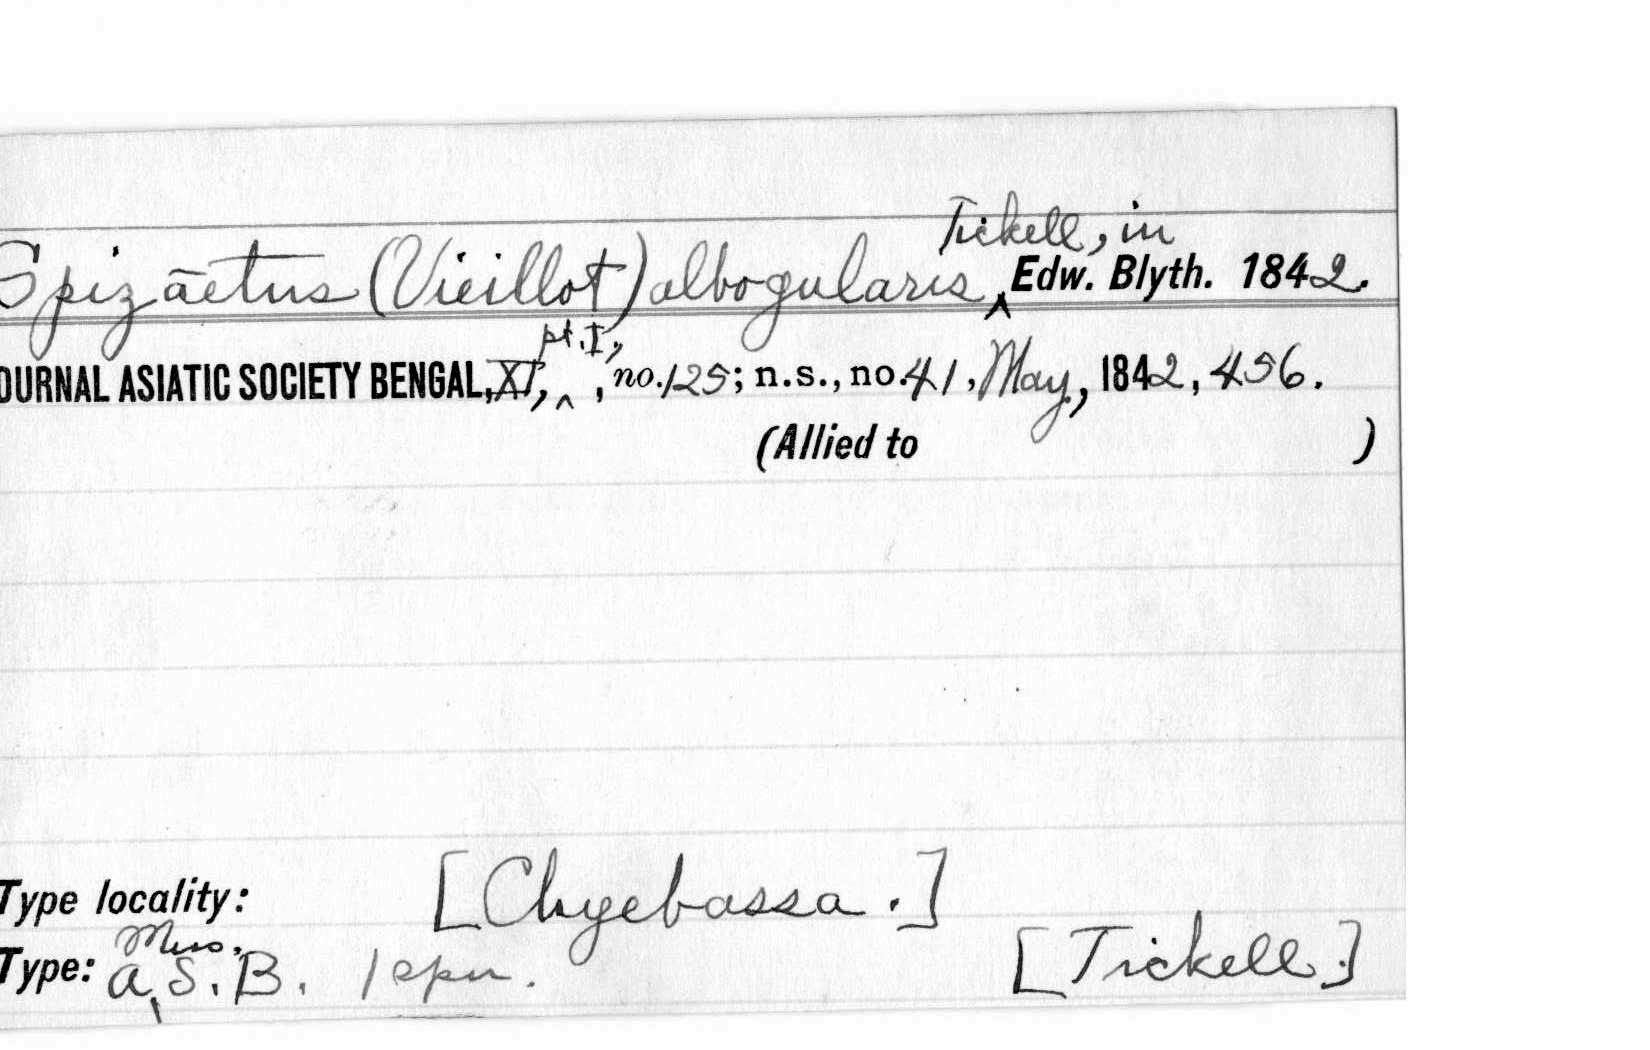 Tickell, in
Spizāetus (Vieillot) albogularis ^ Edw. Blyth. 1842.
pt. I,
OURNAL ASIATIC SOCIETY BENGAL, XI, ^ , no. 125; n.s., no. 41, May, 1842, 456.
(Allied to )
Type locality: [Chyebassa.]
Mus.
Type: A.S.B. 1 spn. [Tickell.]